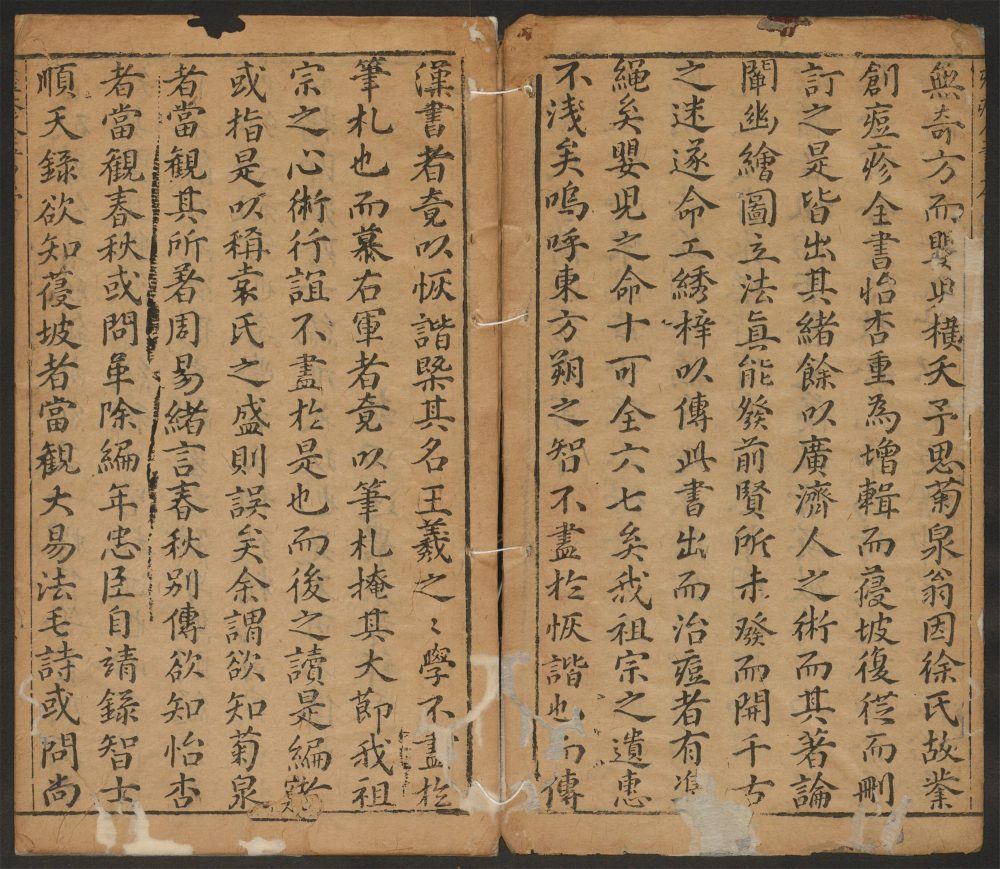 無奇方而嬰兒橫夭予思菊泉翁因徐氏故業
創痘疹全書怡杏重為增輯而葮坡復從而刪
訂之是皆出其緒餘以廣濟人之術而其著論
闡幽繪圖立法真能發前賢所未發而開千古
之迷遂命工綉梓以傳此書出而治痘者有準
繩矣嬰児之命十可全六七矣我祖宗之遺惠
不淺矣嗚呼東方朔之智不盡於恢諧也而傳
漢書者竟以恢諧槩其名王羲之〻學不盡於
筆札也而慕右軍者竟以筆札掩其大節我祖
宗之心術行誼不盡於是也而後之讀是編者
或指是以稱袁氏之盛則誤矣余謂欲知菊泉
者當観其所著周易緒言春秋別傳欲知怡杏
者當觀春秋或問革除編年忠臣自靖錄智士
順天錄欲知葮坡者當観大易法毛詩或問尚